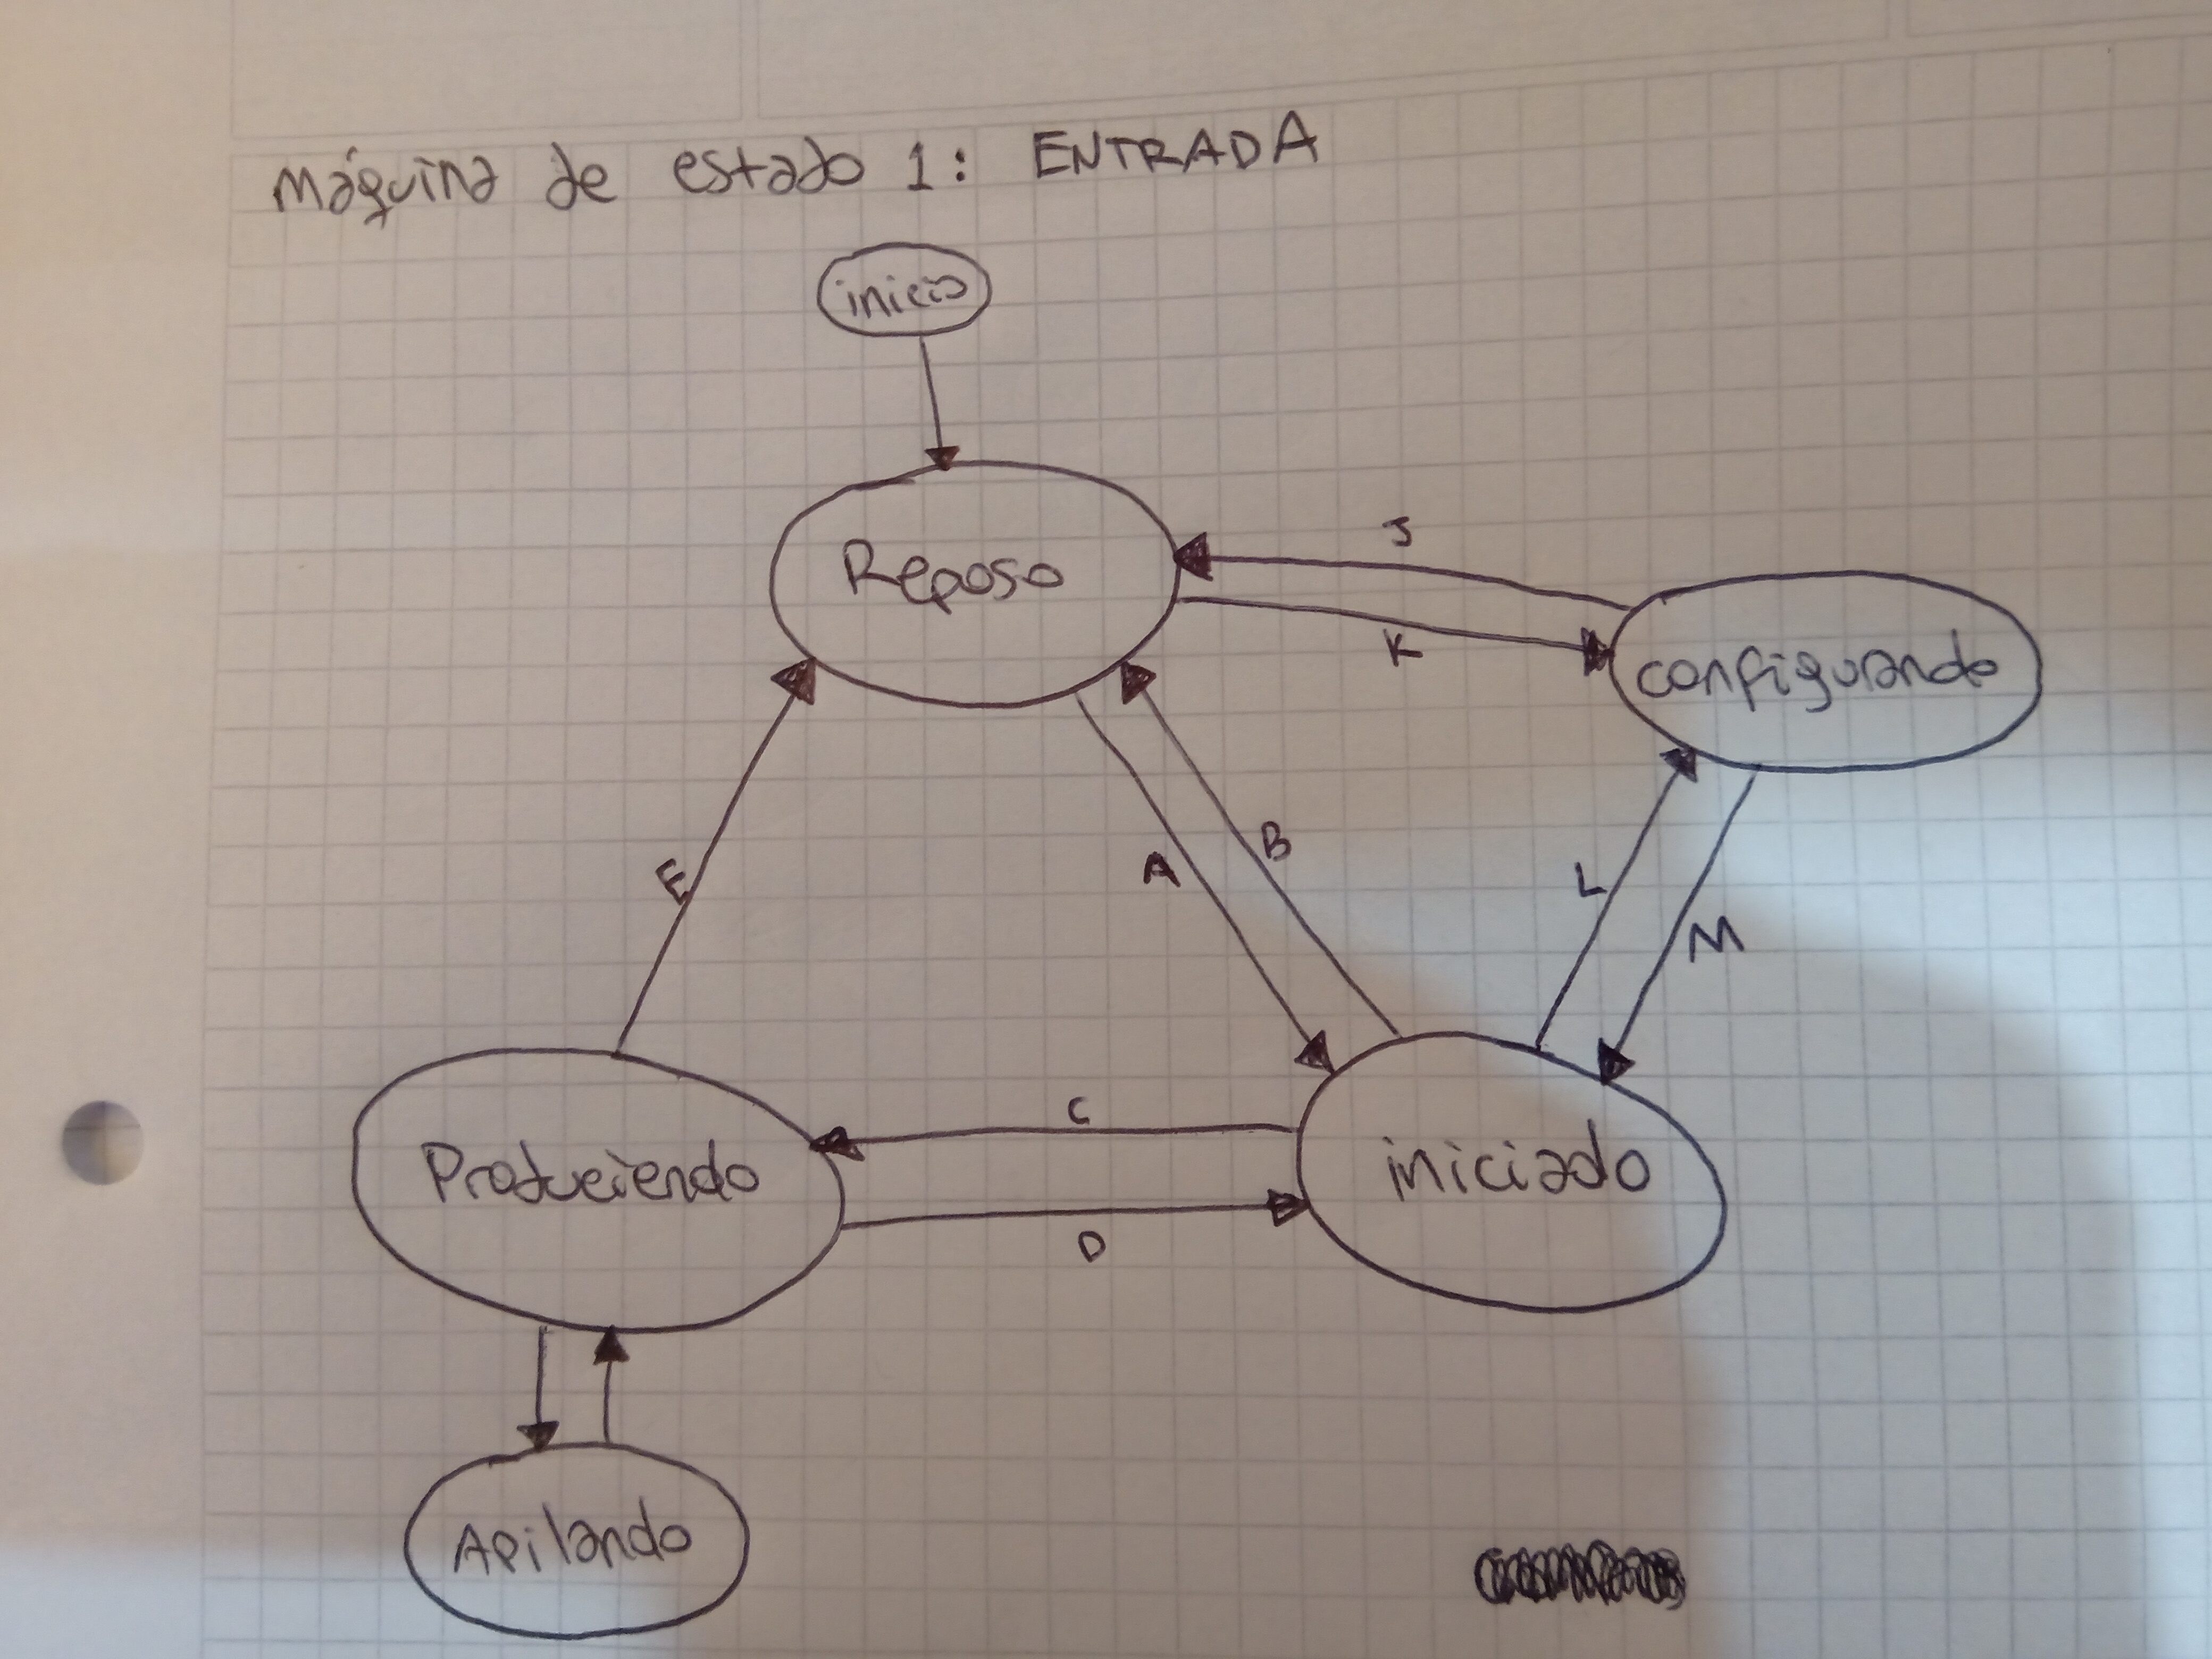 Máquina de estado 1: ENTRADA
inicio
Reposo
J
K
configurando
E
A
B
L
M
C
Produciendo
iniciado
D
Apilando